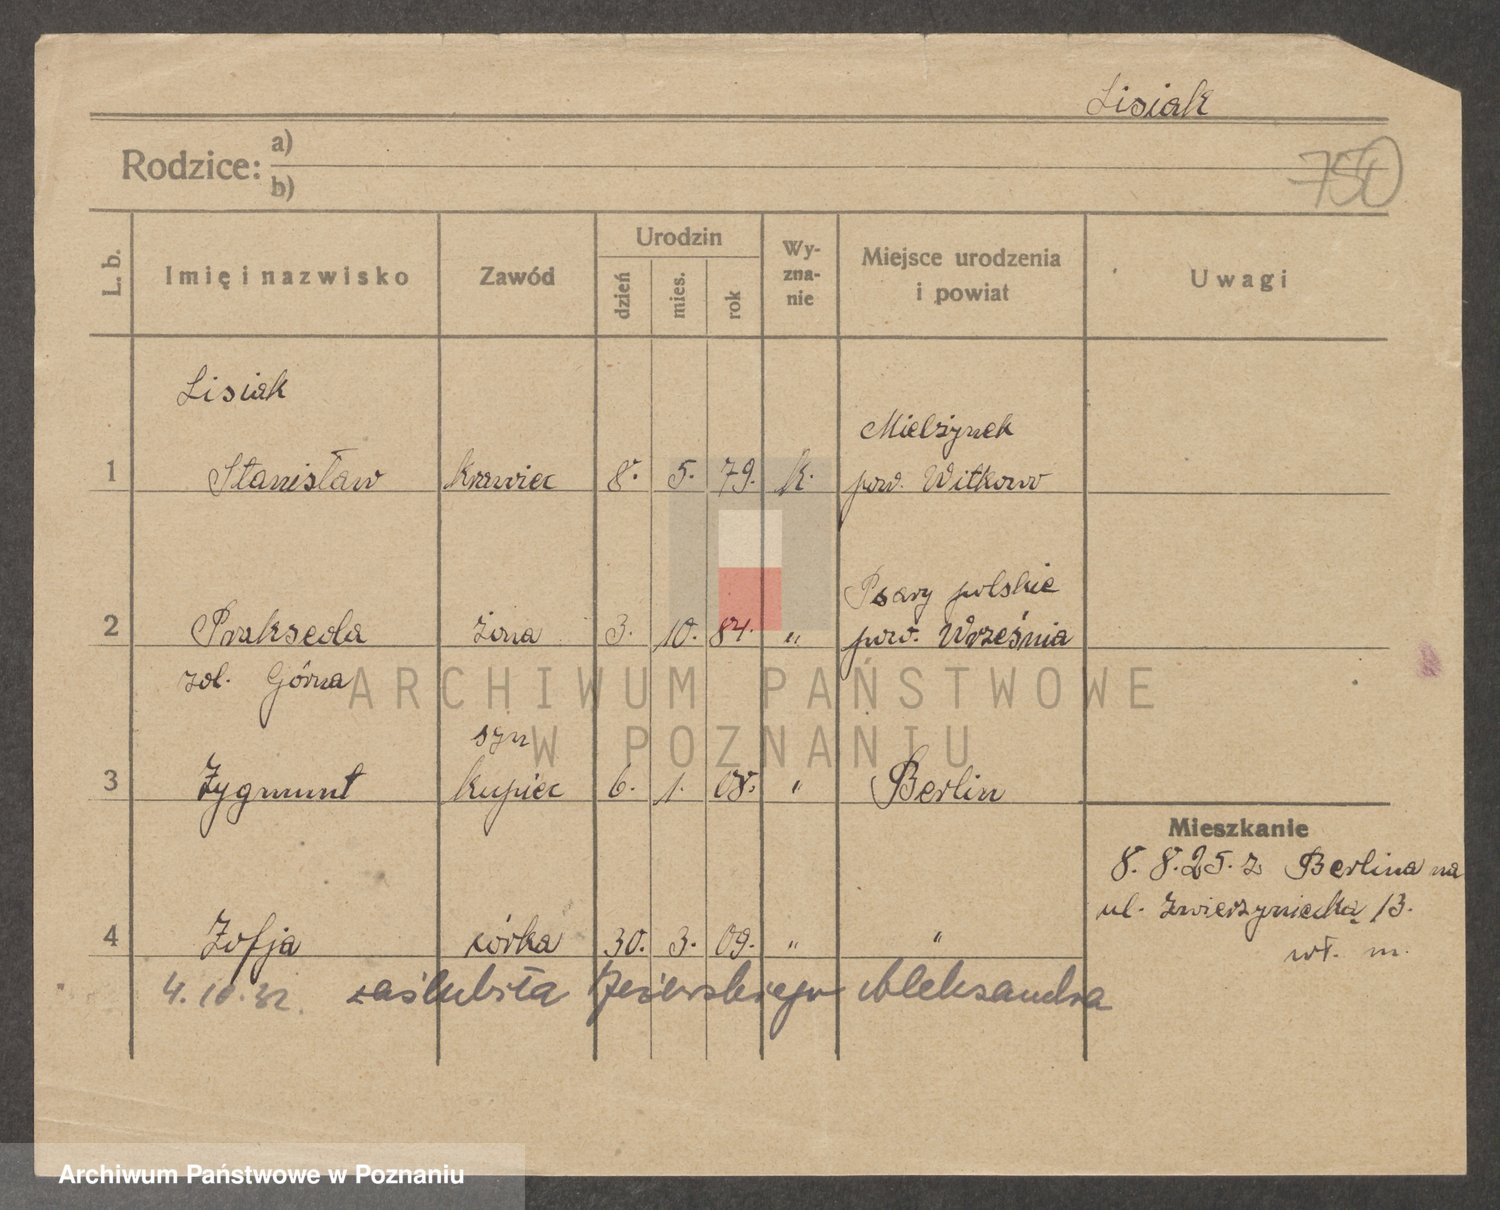 Lisiak
Rodzice: a)
b)
750
L. b. Imię i nazwisko Zawód Urodzin dzień mies. rok Wy-zna-nie Miejsce urodzenia i powiat Uwagi
Lisiak
Mielżynek
1 Stanisław krawiec 8. 5. 79. k. pow. Witkowo
Psary polskie
2 Prakseda żona 3. 10. 84. " pow. Września
zol. Górna
syn
3 Zygmunt kupiec 6. 1. 08. " Berlin
Mieszkanie
8. 8. 25. z Berlina na
ul. Zwierzyniecką 13.
wł. m.
4 Zofja córka 30. 3. 09. " "
4. 10. 32. zaślubiła Aleksandra
ARCHIWUM PAŃSTWOWE
W POZNANIU
Archiwum Państwowe w Poznaniu